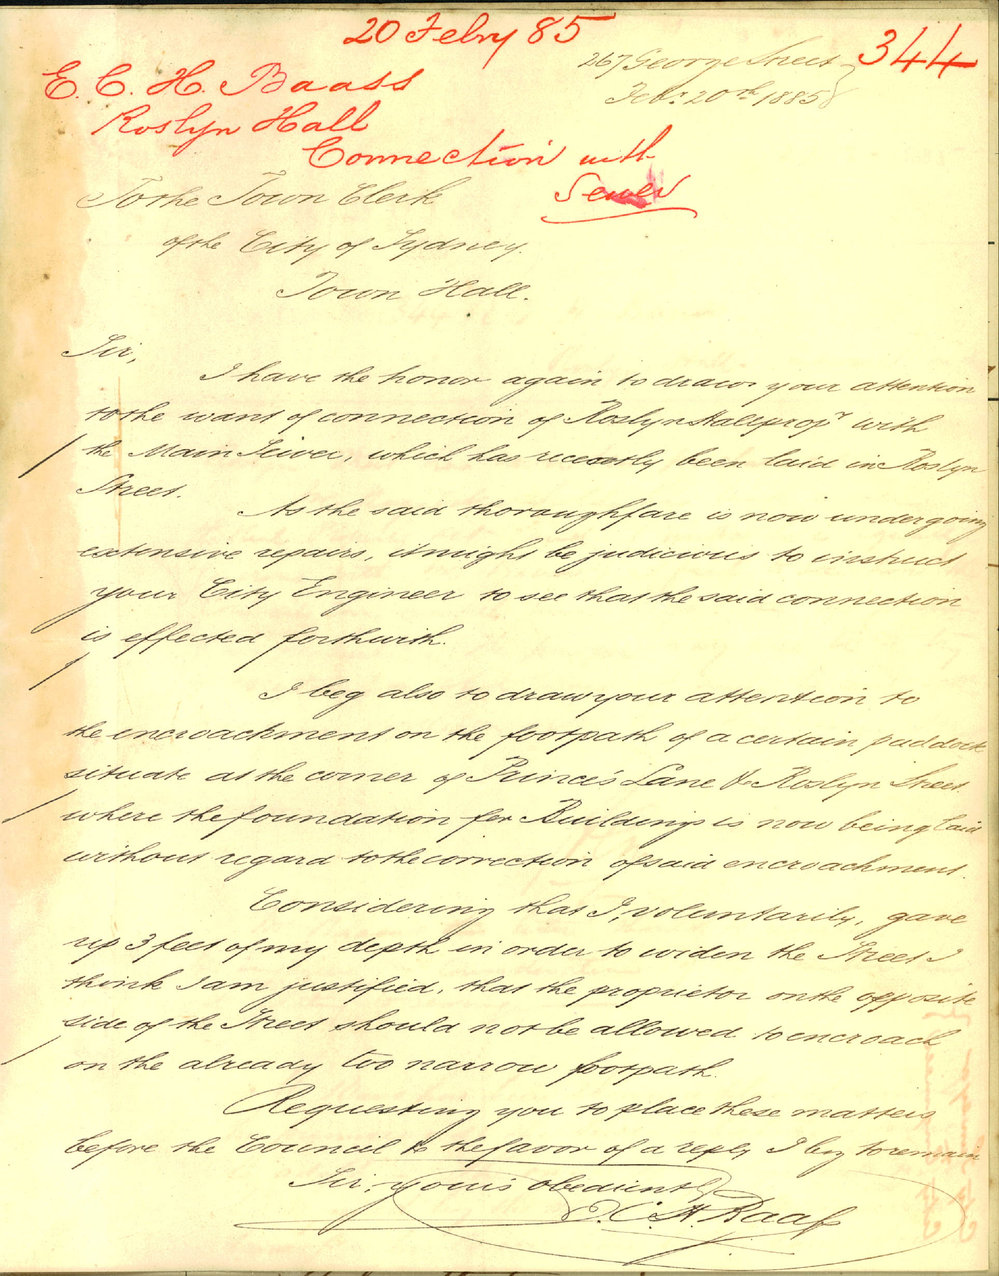 20 Febry 85
344
E. C. H. Baass
Roslyn Hall
Connection with
Sewer
267 George Street
Feb. 20th 1885
To the Town Clerk
of the City of Sydney.
Town Hall.
Sir,
I have the honor again to draw your attention
to the want of connection of Roslyn Hall propr with
the Main Sewer, which has recently been laid in Roslyn
Street.
As the said thoroughfare is now undergoing
extensive repairs, it might be judicious to instruct
your City Engineer to see that the said connection
is effected forthwith.
I beg also to draw your attention to
the encroachment on the footpath of a certain paddock
situate at the corner of Prince's Lane & Roslyn Street
where the foundation for Buildings is now being laid
without regard to the correction of said encroachment.
Considering that I, voluntarily, gave
up 3 feet of my depth in order to widen the Street I
think I am justified, that the proprietor on the opposite
side of the Street should not be allowed to encroach
on the already too narrow footpath.
Requesting you to place these matters
before the Council & the favor of a reply I beg to remain
Sir, yours obediently
E. C. H. Baass